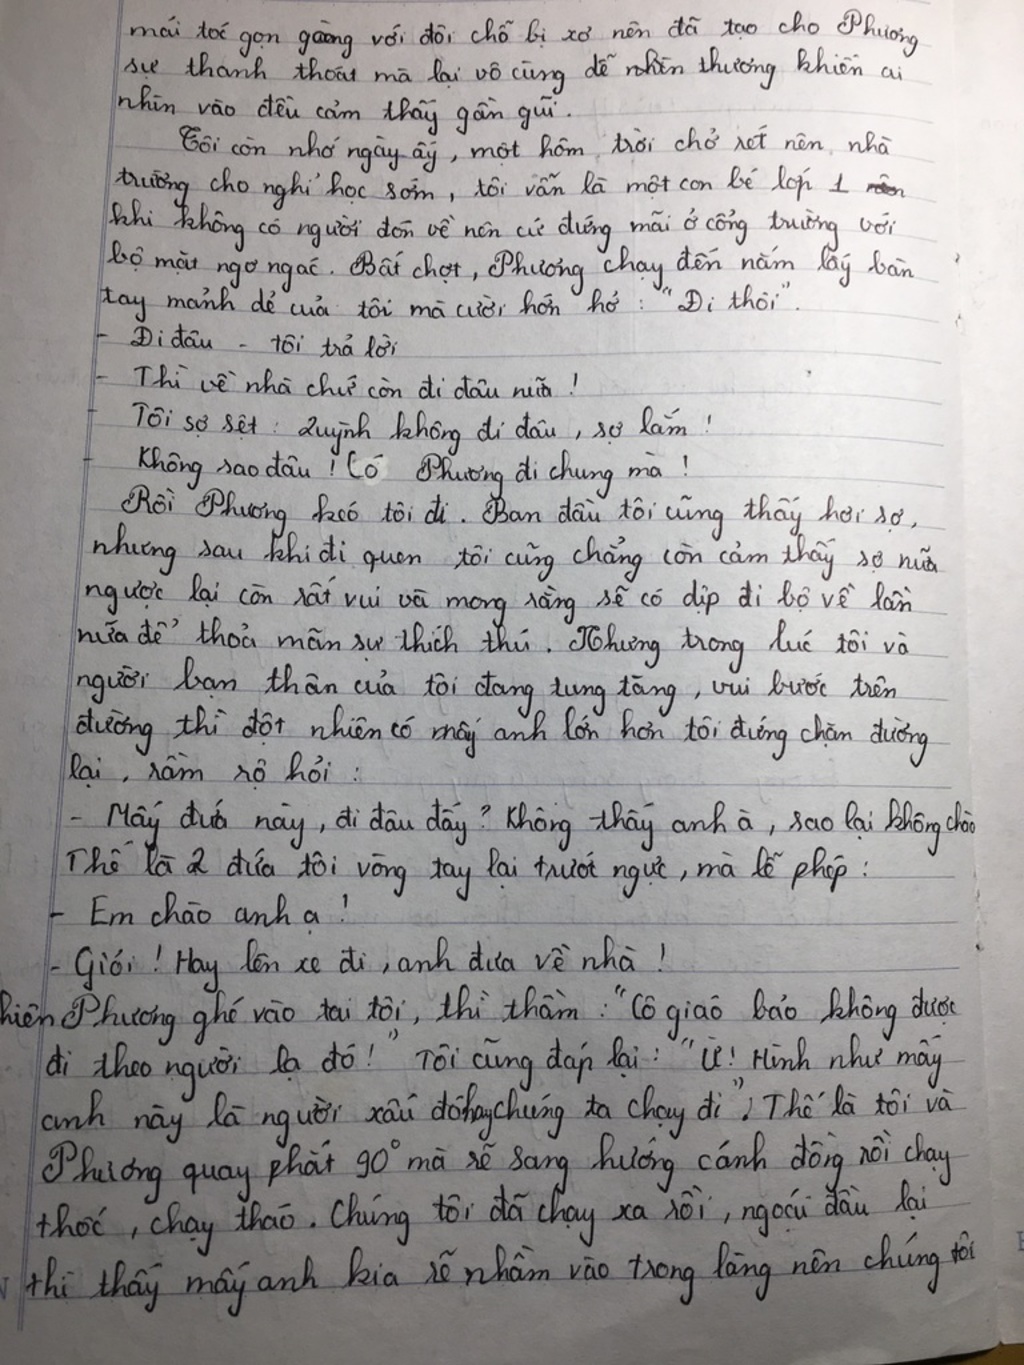 mái tóc gọn gàng với đôi chỗ bị xơ nên đã tạo cho Phương
sự thanh thoát mà lại vô cùng dễ nhìn thương khiến ai
nhìn vào đều cảm thấy gần gũi.
Tôi còn nhớ ngày ấy, một hôm trời chở rét nên nhà
trường cho nghỉ học sớm, tôi vẫn là một con bé lớp 1
khi không có người đón về nên cứ đứng mãi ở cổng trường với
bộ mặt ngơ ngác. Bất chợt, Phương chạy đến nắm lấy bàn
tay mảnh dẻ của tôi mà cười hớn hở: "Đi thôi".
- Đi đâu - tôi trả lời
- Thì về nhà chứ còn đi đâu nữa!
- Tôi sợ sệt: Quỳnh không đi đâu, sợ lắm!
- Không sao đâu! Có Phương đi chung mà!
Rồi Phương kéo tôi đi. Ban đầu tôi cũng thấy hơi sợ,
nhưng sau khi đi quen tôi cũng chẳng còn cảm thấy sợ nữa
ngược lại còn rất vui và mong rằng sẽ có dịp đi bộ về lần
nữa để thoả mãn sự thích thú. Nhưng trong lúc tôi và
người bạn thân của tôi đang tung tăng, vui bước trên
đường thì đột nhiên có mấy anh lớn hơn tôi đứng chặn đường
lại, rầm rộ hỏi:
- Mấy đứa này, đi đâu đấy? Không thấy anh à, sao lại không chào
Thế là 2 đứa tôi vòng tay lại trước ngực, mà lễ phép:
- Em chào anh ạ!
- Giỏi! Hay lên xe đi, anh đưa về nhà!
hiên Phương ghé vào tai tôi, thì thầm: "Cô giáo bảo không được
đi theo người lạ đó!" Tôi cũng đáp lại: "Ừ! Hình như mấy
anh này là người xấu đó hay chúng ta chạy đi". Thế là tôi và
Phương quay phắt 90° mà rẽ sang hướng cánh đồng rồi chạy
thốc, chạy tháo. Chúng tôi đã chạy xa rồi, ngoái đầu lại
thì thấy mấy anh kia rẽ nhầm vào trong làng nên chúng tôi